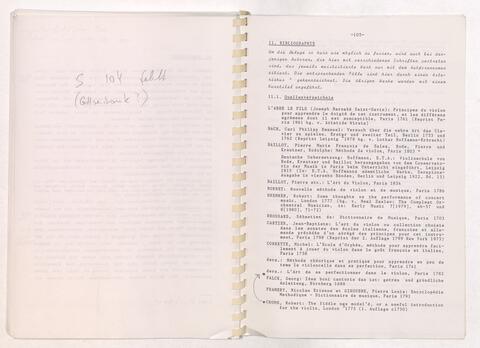 S 104 fehlt
-105-
11. BIBLIOGRAPHIE
Um die Belege so kurz wie möglich zu fassen, wird nach bei den-
jenigen Autoren, die hier mit verschiedenen Schriften vertreten
sind, das jeweils meistzitierte Werk nur mit dem Autorennamen
zitiert. Die entsprechenden Fälle sind hier durch einen Aste-
gekennzeichnet. Die übrigen Werke werden mit einem
Kurztitel angeführt.
11.1. Quellenverzeichnis
L'ABBE LE FILS (Joseph Barnabé Saint-Sevin): Principes du violon
pour apprendre le doigté de cet instrument, et les différens
agrémens dont il est susceptible, Paris 1761 (Reprint Pa-
ris 1961 hg. v. Aristide Wirsta)
BACH, Carl Philipp Emanuel: Versuch über die wahre Art das Cla-
vier zu spielen. Erster und zweiter Teil, Berlin 1753 und
1762 (Reprint Leipzig 1978 hg. v. Lothar Hoffmann-Erbrecht)
BAILLOT, Pierre Marie François de Sales, Rode, Pierre und
Kreutzer, Rodolphe: Méthode de violon, Paris 1803 *
Deutsche Uebersetzung:
Rode, Kreutzer und Baillot herausgegeben von dem Conservato-
rio der Musik in Paris beim Unterricht eingeführt, Leipzig
BAILLOT, Pierre etc.: L'art du violon Paris 1834
BORNET: Nouvelle méthode de violon et de musique, Paris 1786
BREMNER, Robert: Some thoughts on the performance of concert
music. London 1777 (hg. v. Neal Zaslaw: The Compleat Or-
chestral Musician, in: Early Music 7[1979], 46-57 und
8[1980], 71-72)
BROSSARD, Sébastien de: Dictionaire de Musique, Paris 1703
CARTIER, Jean-Baptiste: L'art du violon ou collection choisie
dans les sonates des écoles italienne, française et alle-
mande précédée d'un abrégé des principes pour cet instru-
ment, Paris 1798 (Reprint der 2. Auflage 1799 New York 1973)
CORRETTE, Michel: L'Ecole d'Orphée, méthode pour apprendre faci-
lement à jouer du violon dans le goût françois et italien,
Paris 1738
ders.: Méthode théorique et pratique pour apprendre en peu de
tems le violoncelle dans sa perfection, Paris 1741
ders.: L'Art de se perfectionner dans le violon, Paris 1782
FALCK, Georg: Idea boni cantoris das ist: getreu und gründliche
Anleitung, Nürnberg 1688
FRAMERY, Nicolas Etienne et GINGUENE, Pierre Louis: Encyclopédie
Méthodique - Dictionaire de musique, Paris 1791
CROME, Robert: The Fiddle new model'd, or a useful introduction
for the violin, London